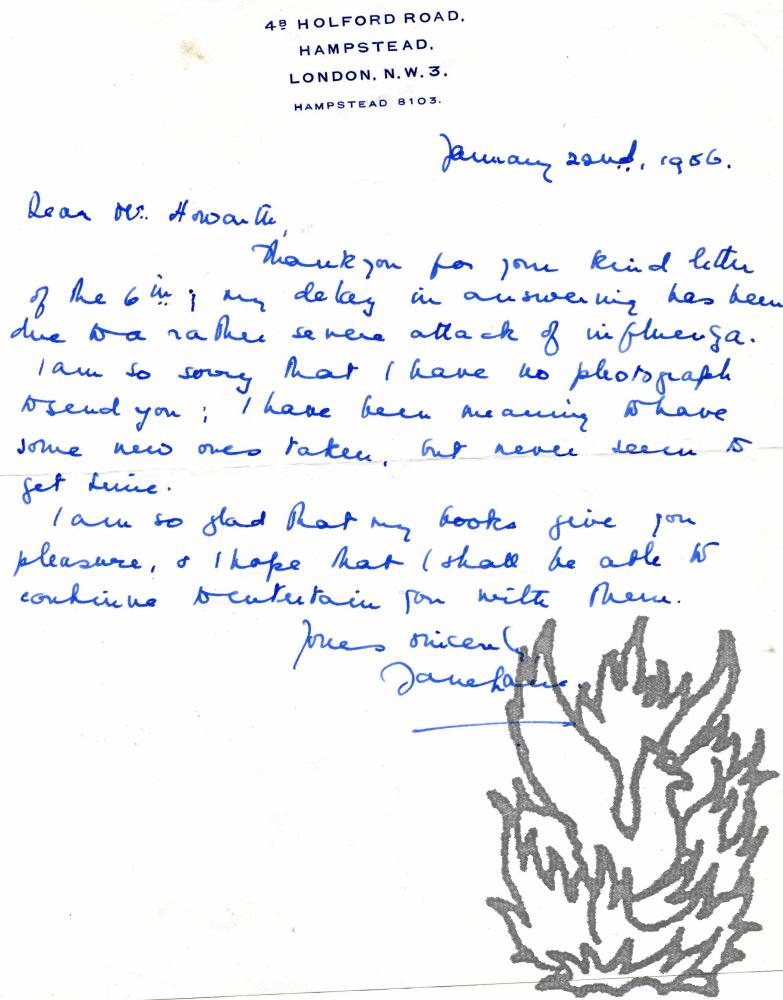 4B HOLFORD ROAD,
HAMPSTEAD,
LONDON, N.W.3.
HAMPSTEAD 8103.
January 22nd, 1956.
Dear Mr. Howarth,
Thank you for your kind letter
of the 6th; my delay in answering has been
due to a rather severe attack of influenza.
I am so sorry that I have no photograph
to send you; I have been meaning to have
some new ones taken, but never seem to
get time.
I am so glad that my books give you
pleasure, & I hope that I shall be able to
continue to entertain you with them.
Yours sincerely,
Jane Lane.